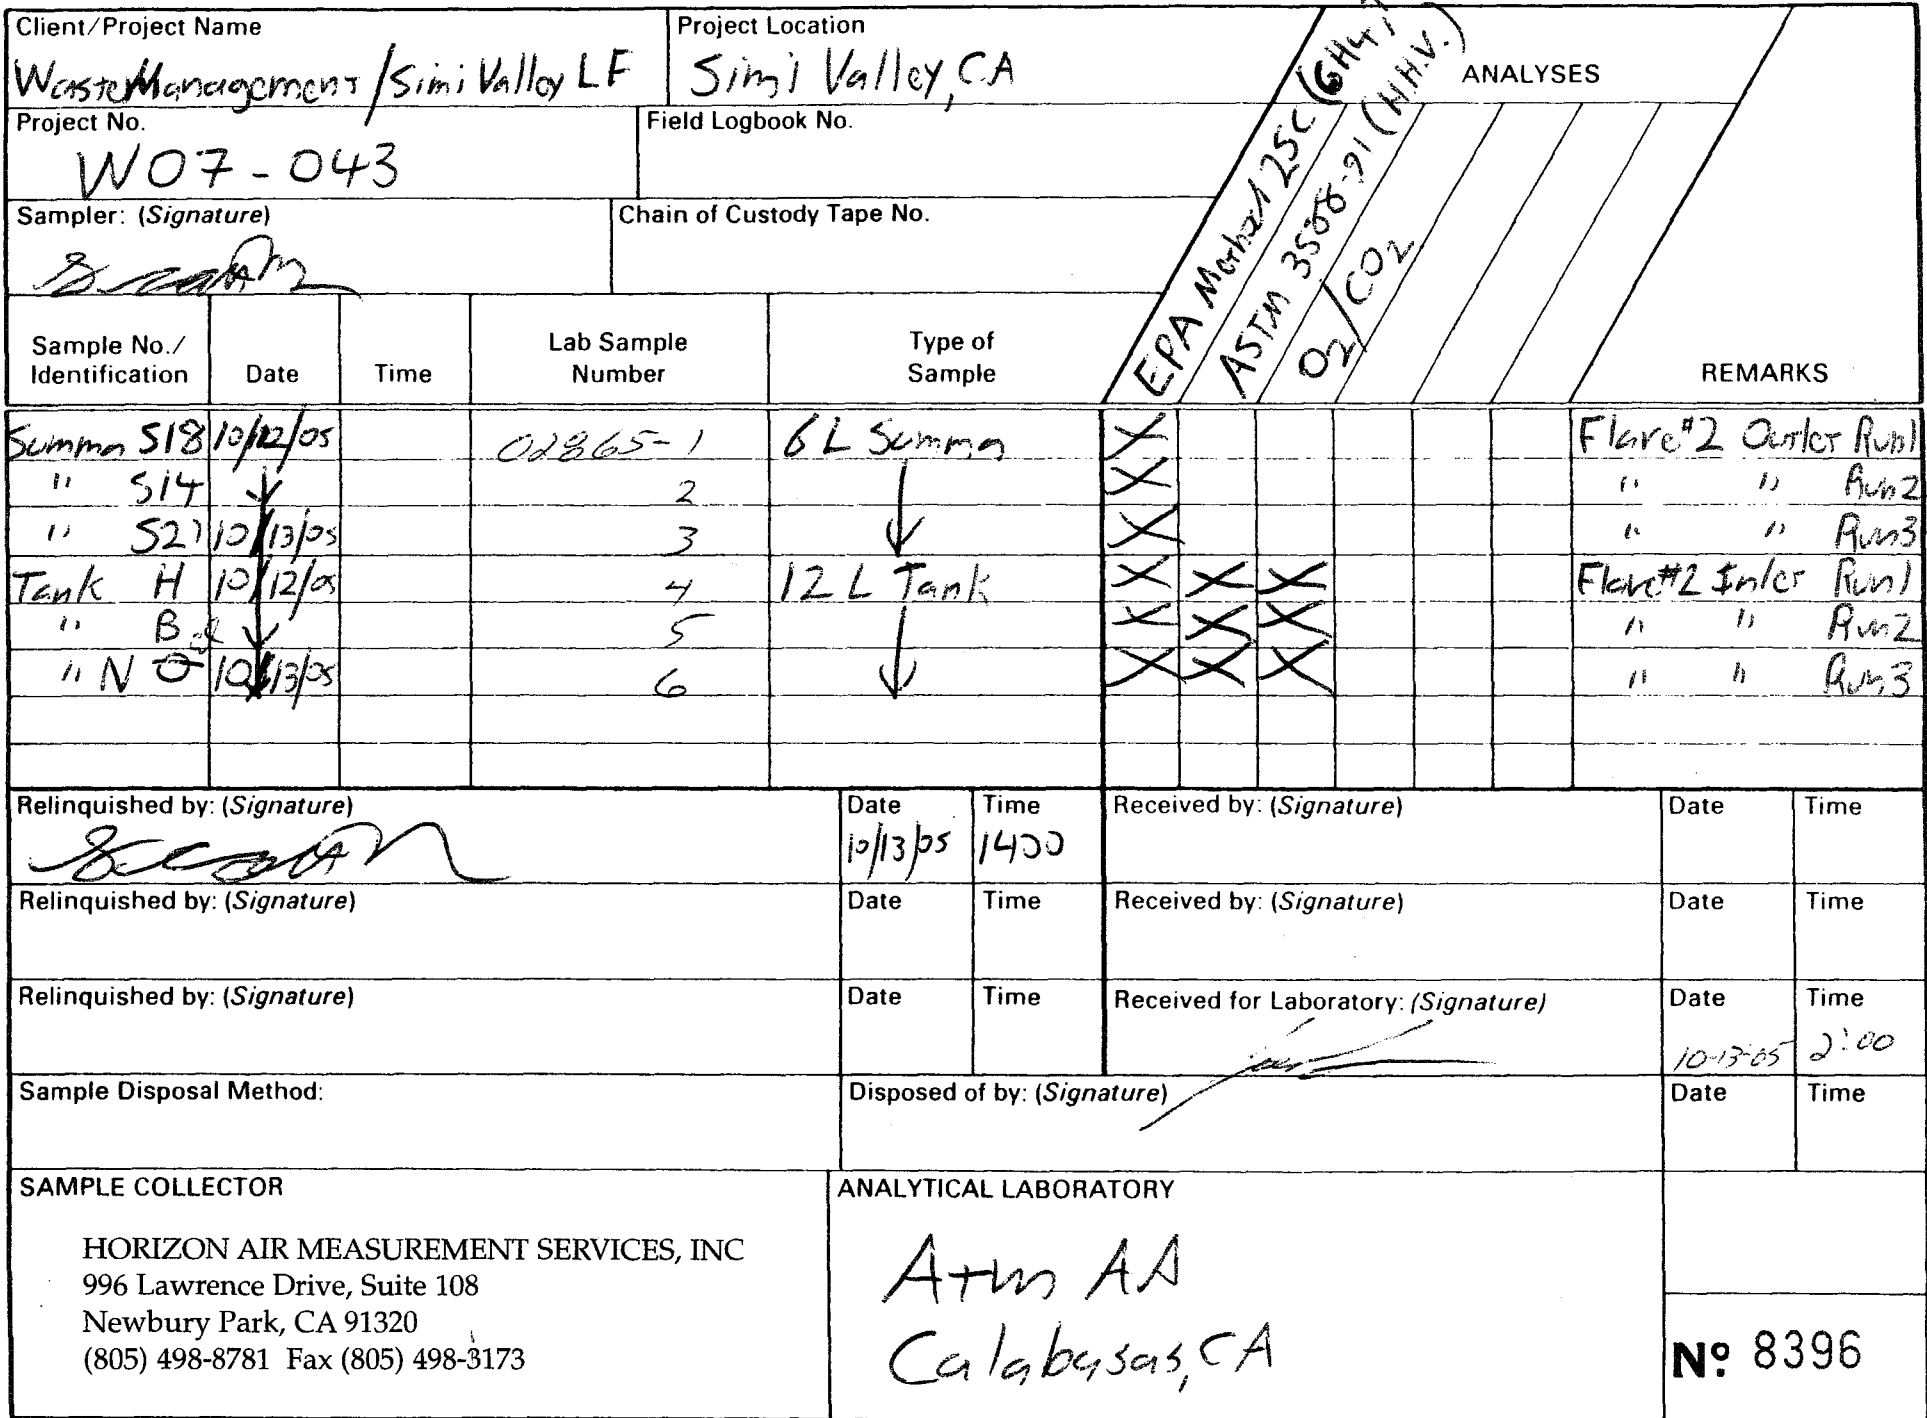 Client/Project Name
Waste Management / Simi Valley LF
Project Location
Simi Valley, CA
Project No.
W07-043
Field Logbook No.
Sampler: (Signature)
Chain of Custody Tape No.
ANALYSES
EPA Method 25C (CH4,
ASTM 3588-91 (H.H.V.)
O2/CO2
Sample No./ Identification Date Time Lab Sample Number Type of Sample REMARKS
Summa S18 10/12/05 02865-1 6 L Summa X Flare #2 Outlet Run 1
" S14 ↓ 2 X " " Run 2
" S21 10/13/05 3 ↓ X " " Run 3
Tank H 10/12/05 4 12 L Tank X X X Flare #2 Inlet Run 1
" B ↓ 5 X X X " " Run 2
" N 10/13/05 6 ↓ X X X " " Run 3
Relinquished by: (Signature) Date Time Received by: (Signature) Date Time
10/13/05 1400
Relinquished by: (Signature) Date Time Received by: (Signature) Date Time
Relinquished by: (Signature) Date Time Received for Laboratory: (Signature) Date Time
10-13-05 2:00
Sample Disposal Method: Disposed of by: (Signature) Date Time
SAMPLE COLLECTOR
HORIZON AIR MEASUREMENT SERVICES, INC
996 Lawrence Drive, Suite 108
Newbury Park, CA 91320
(805) 498-8781 Fax (805) 498-3173
ANALYTICAL LABORATORY
Atm AA
Calabasas, CA
Nº 8396